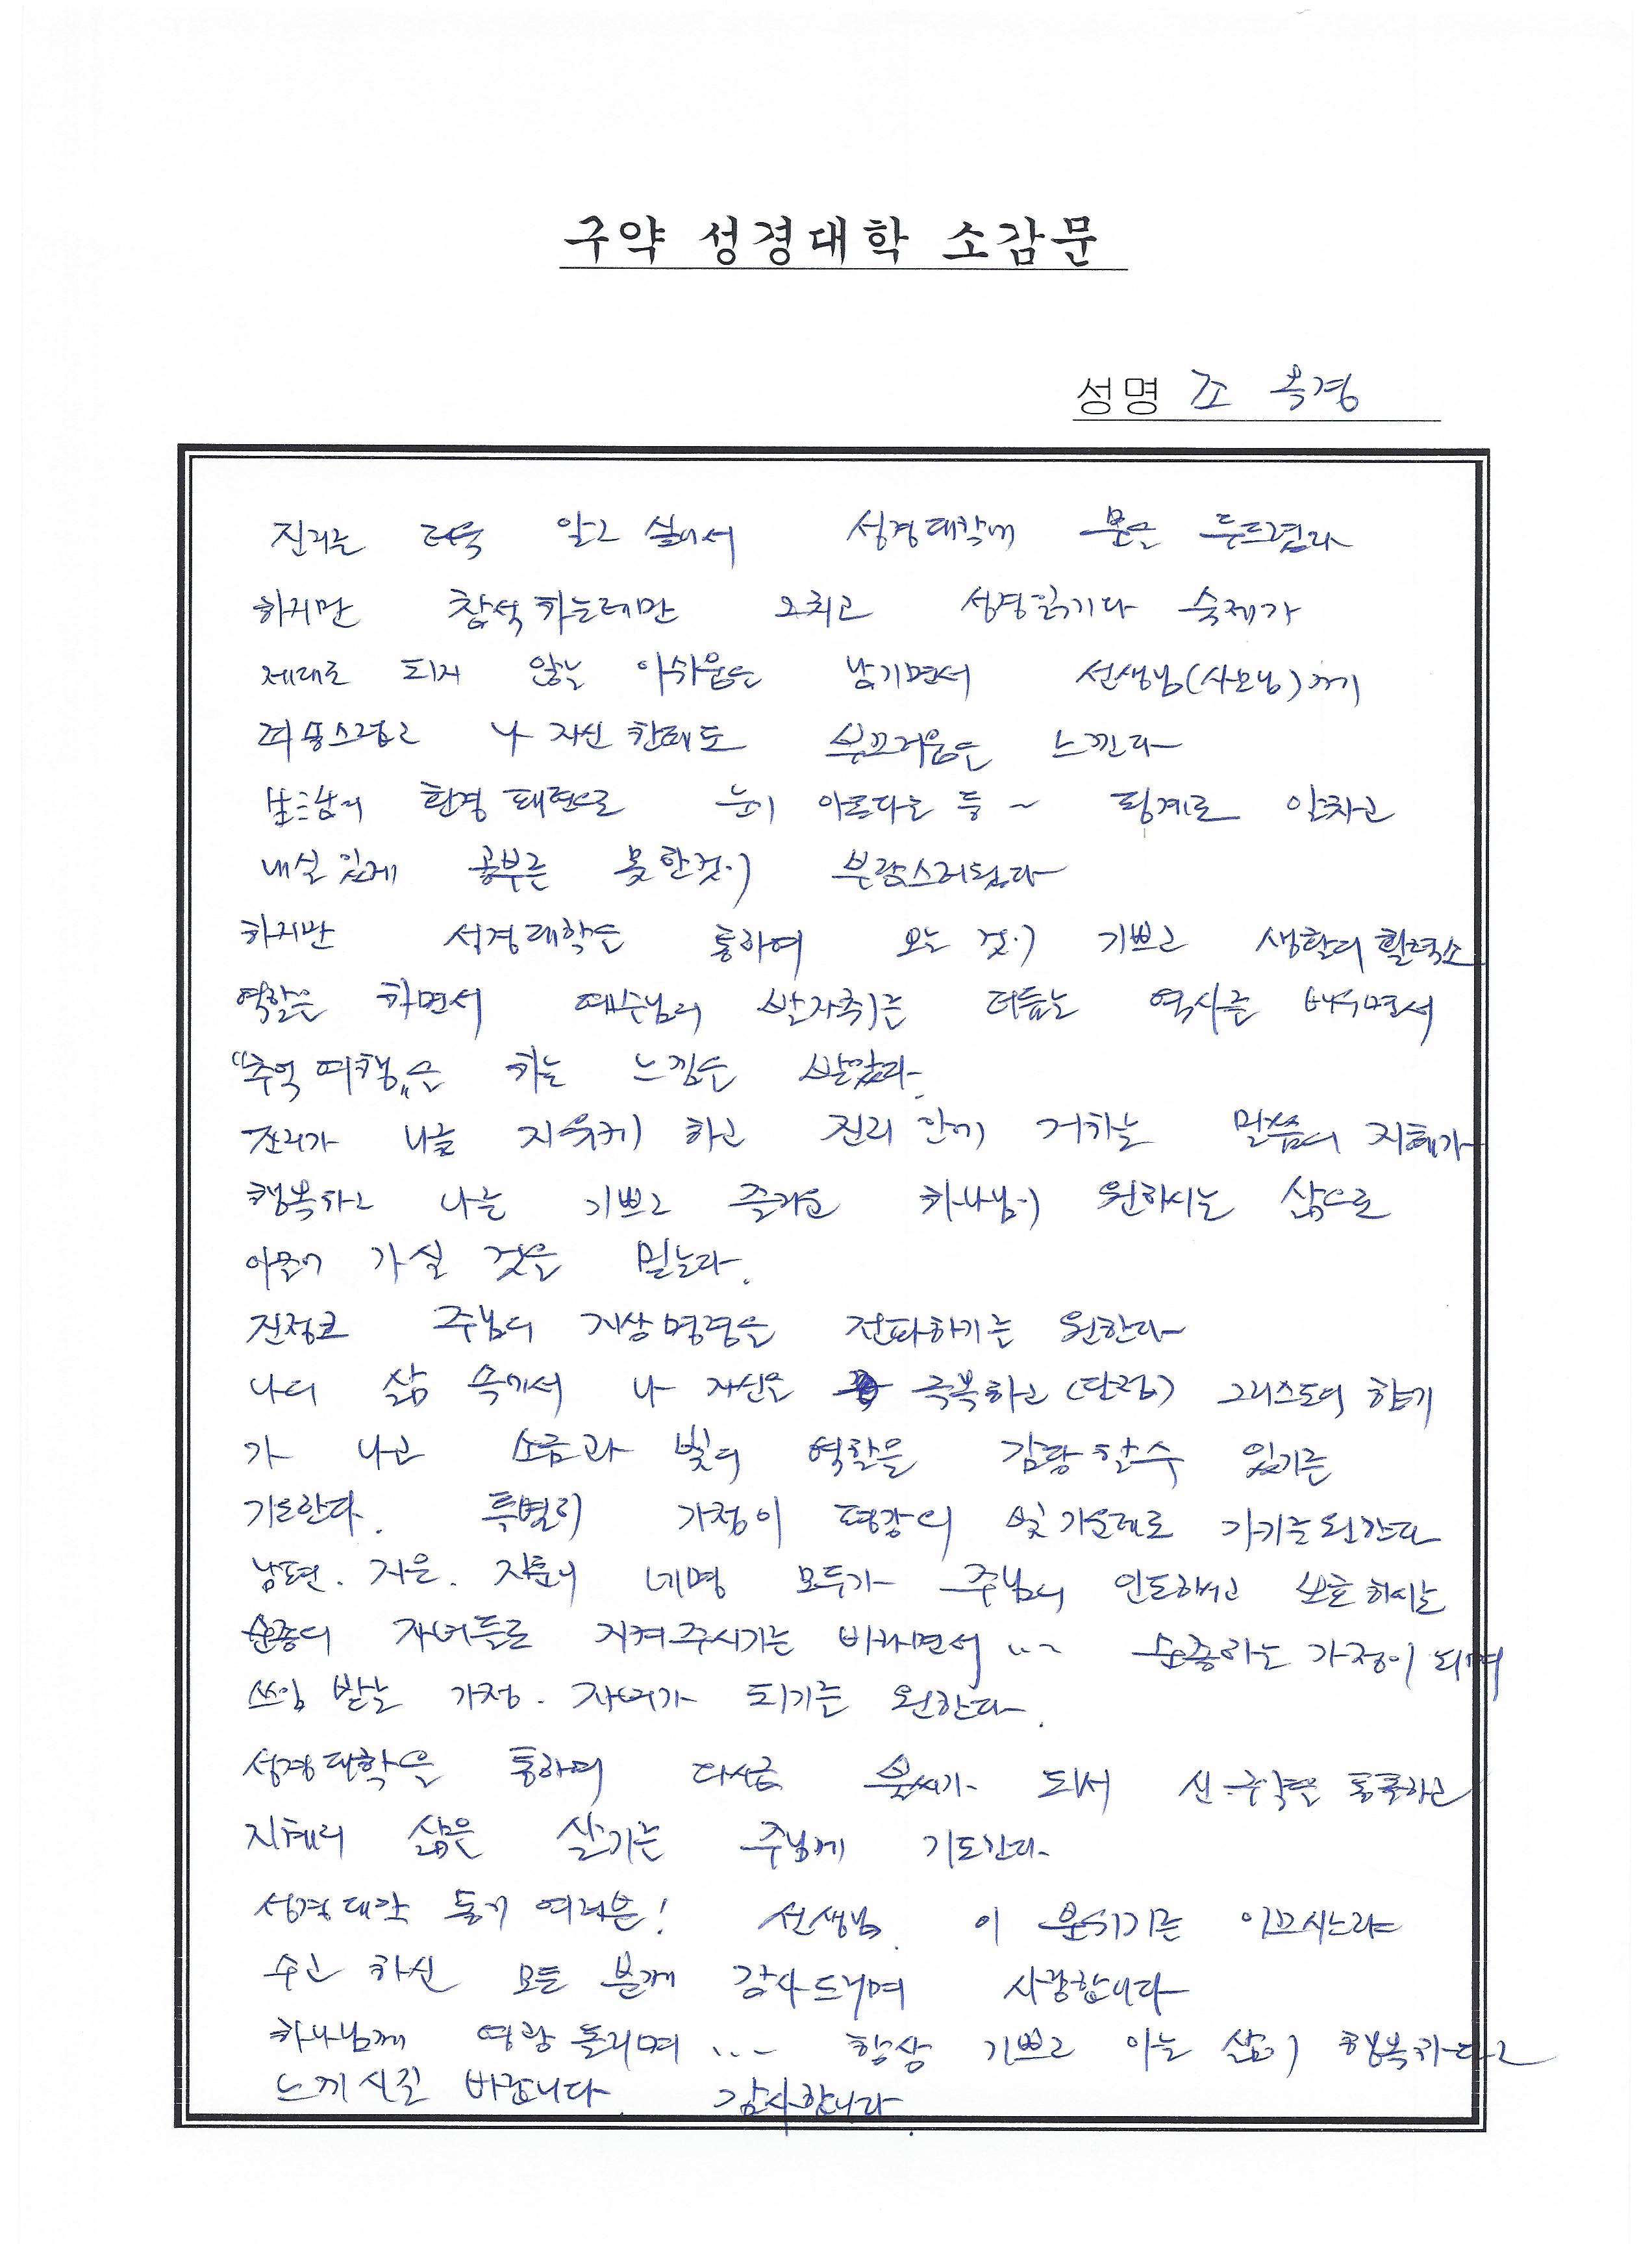 구약 성경대학 소감문
성명 조 복경
진리는 더욱 알고 싶어서 성경대학에 문을 두드렸다
하지만 참석하는데만 그치고 성경읽기나 숙제가
제대로 되지 않는 아쉬움을 남기면서 선생님(사모님)께
죄송스럽고 나 자신 한테도 부끄러움을 느낀다
환경 태도로 눈이 아프다는 등 ~ 핑계로 알차고
내실있게 공부를 못한것이 부담스러웠다
하지만 성경대학을 통하여 오는 것이 기쁘고 생활의 활력소
역할을 하면서 예수님의 발자취를 더듬는 역사를 배우면서
"추억 여행"을 하는 느낌을 받았다.
진리가 나를 자유케 하고 진리 안에 거하는 말씀의 지혜가
행복하고 나를 기쁘고 즐거운 하나님이 원하시는 삶으로
이끌어 가실 것을 믿는다.
진정코 주님의 지상명령을 전파하기를 원한다
나의 삶 속에서 나 자신을 극복하고 (단점) 그리스도의 향기
가 나고 소금과 빛의 역할을 감당할수 있기를
기도한다. 특별히 가정이 평강의 빛 가운데로 가기를 원한다
남편. 지은. 지훈이 네명 모두가 주님의 인도하시고 보호하시는
순종의 자녀들로 지켜주시기를 바라면서 ... 순종하는 가정이 되며
쓰임 받는 가정. 자녀가 되기를 원한다.
성경대학을 통하여 다시금 불씨가 되서 신·구약을 통독하고
지혜의 삶을 살기를 주님께 기도한다.
성경대학 동기 여러분! 선생님. 이 분위기를 이끄시느라
수고 하신 모든 분께 감사드리며 사랑합니다
하나님께 영광 돌리며 ... 항상 기쁘고 아는 삶이 행복하다고
느끼시길 바랍니다. 감사합니다